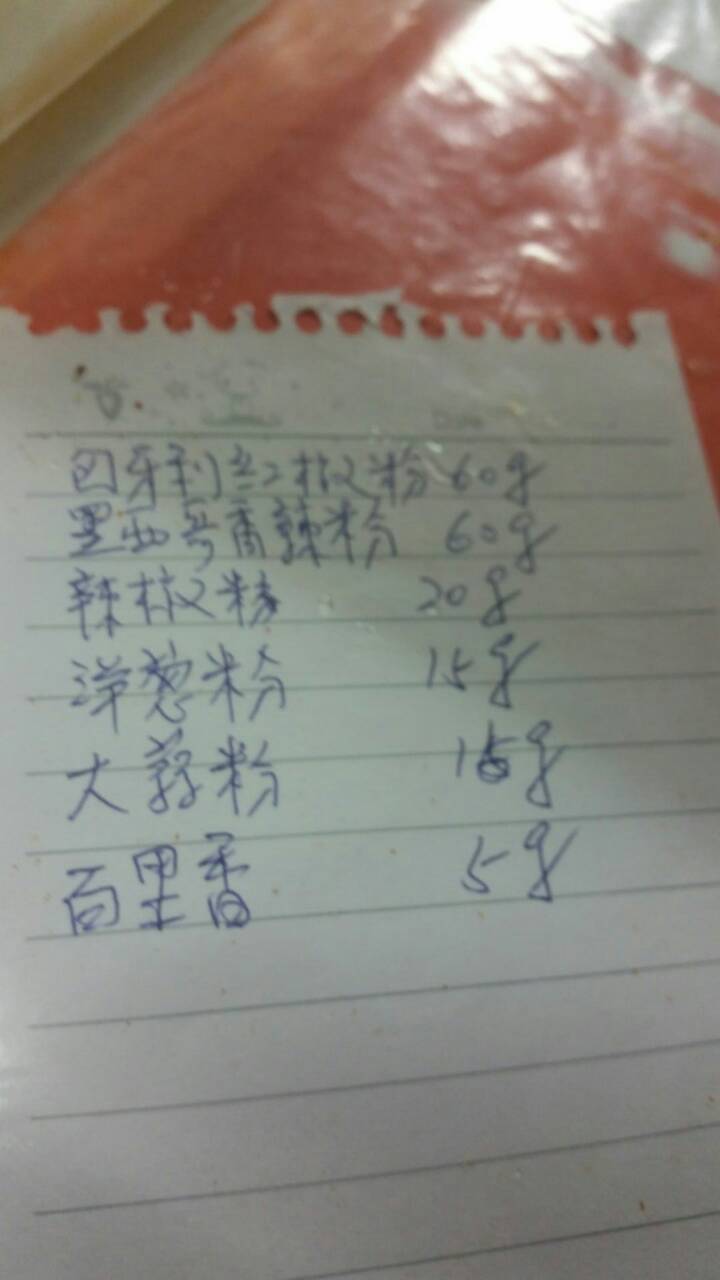 匈牙利红椒粉 60g
墨西哥香辣粉 60g
辣椒粉 20g
洋葱粉 15g
大蒜粉 15g
百里香 5g